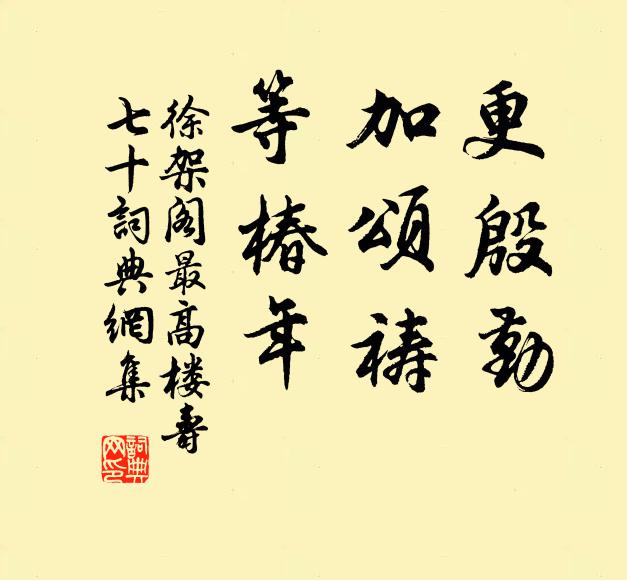 更殷勤
加頌禱
等椿年
徐架阁最高楼壽
七十詞典網集
詞典网印